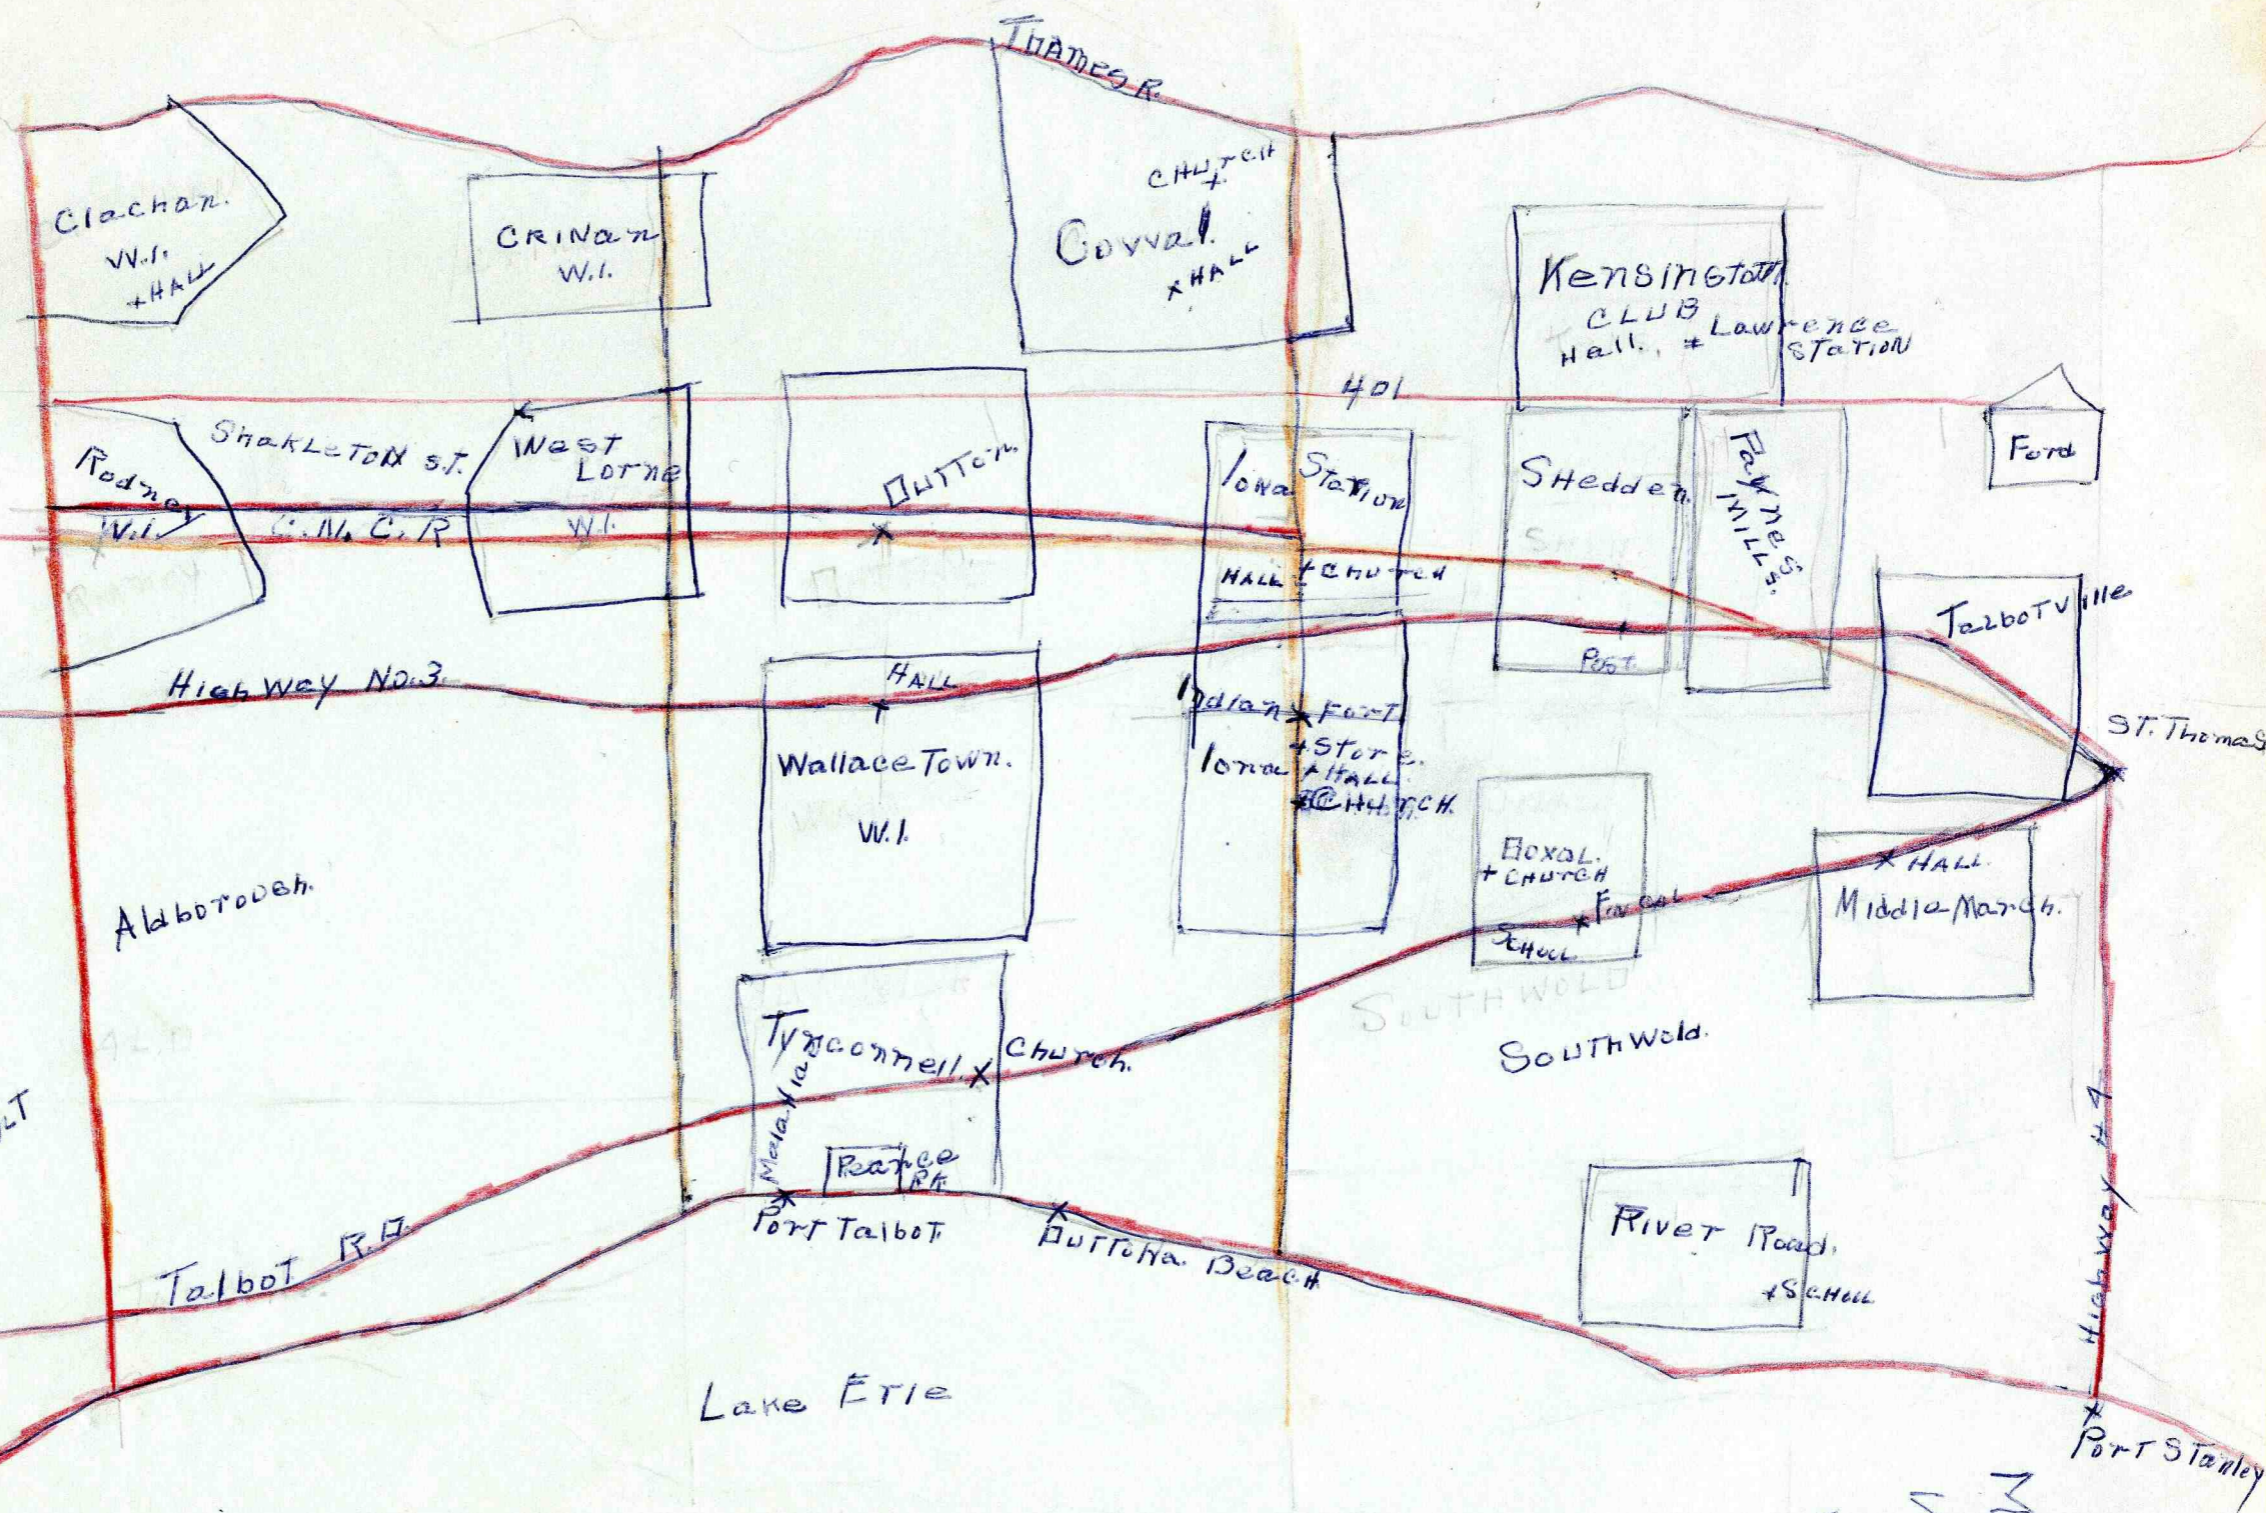 Thames R.
Clachan.
W.I.
+HALL
CRINan
W.I.
CHUrCH
+
Covval.
x HALL
Kensington
CLUB
Hall.
* Lawrence
Station
401
Rodney
W.I.
Shakleton St.
C.N. C.R
West
Lorne
W.I.
Dutton.
Iona Station
HALL + CHUrCH
Shedden.
Post.
Paynes
Mills.
Ford
Talbotville
St. Thomas
HighWay No. 3.
HALL
Wallace Town.
W.I.
Indian x Fort
+ Store.
Iona + HALL.
CHUrCH.
Boxal.
+ CHUrCH
Fingal
School
x HALL.
MiddleMarch.
Aldborough.
Tyrconnell. x Church.
Malahia
Pearce
PK
SOUTHWOLD
SouthWold.
LT
Talbot RD.
Port Talbot.
Duttona Beach
River Road.
+School
Highway #4
Lake Erie
Port Stanley